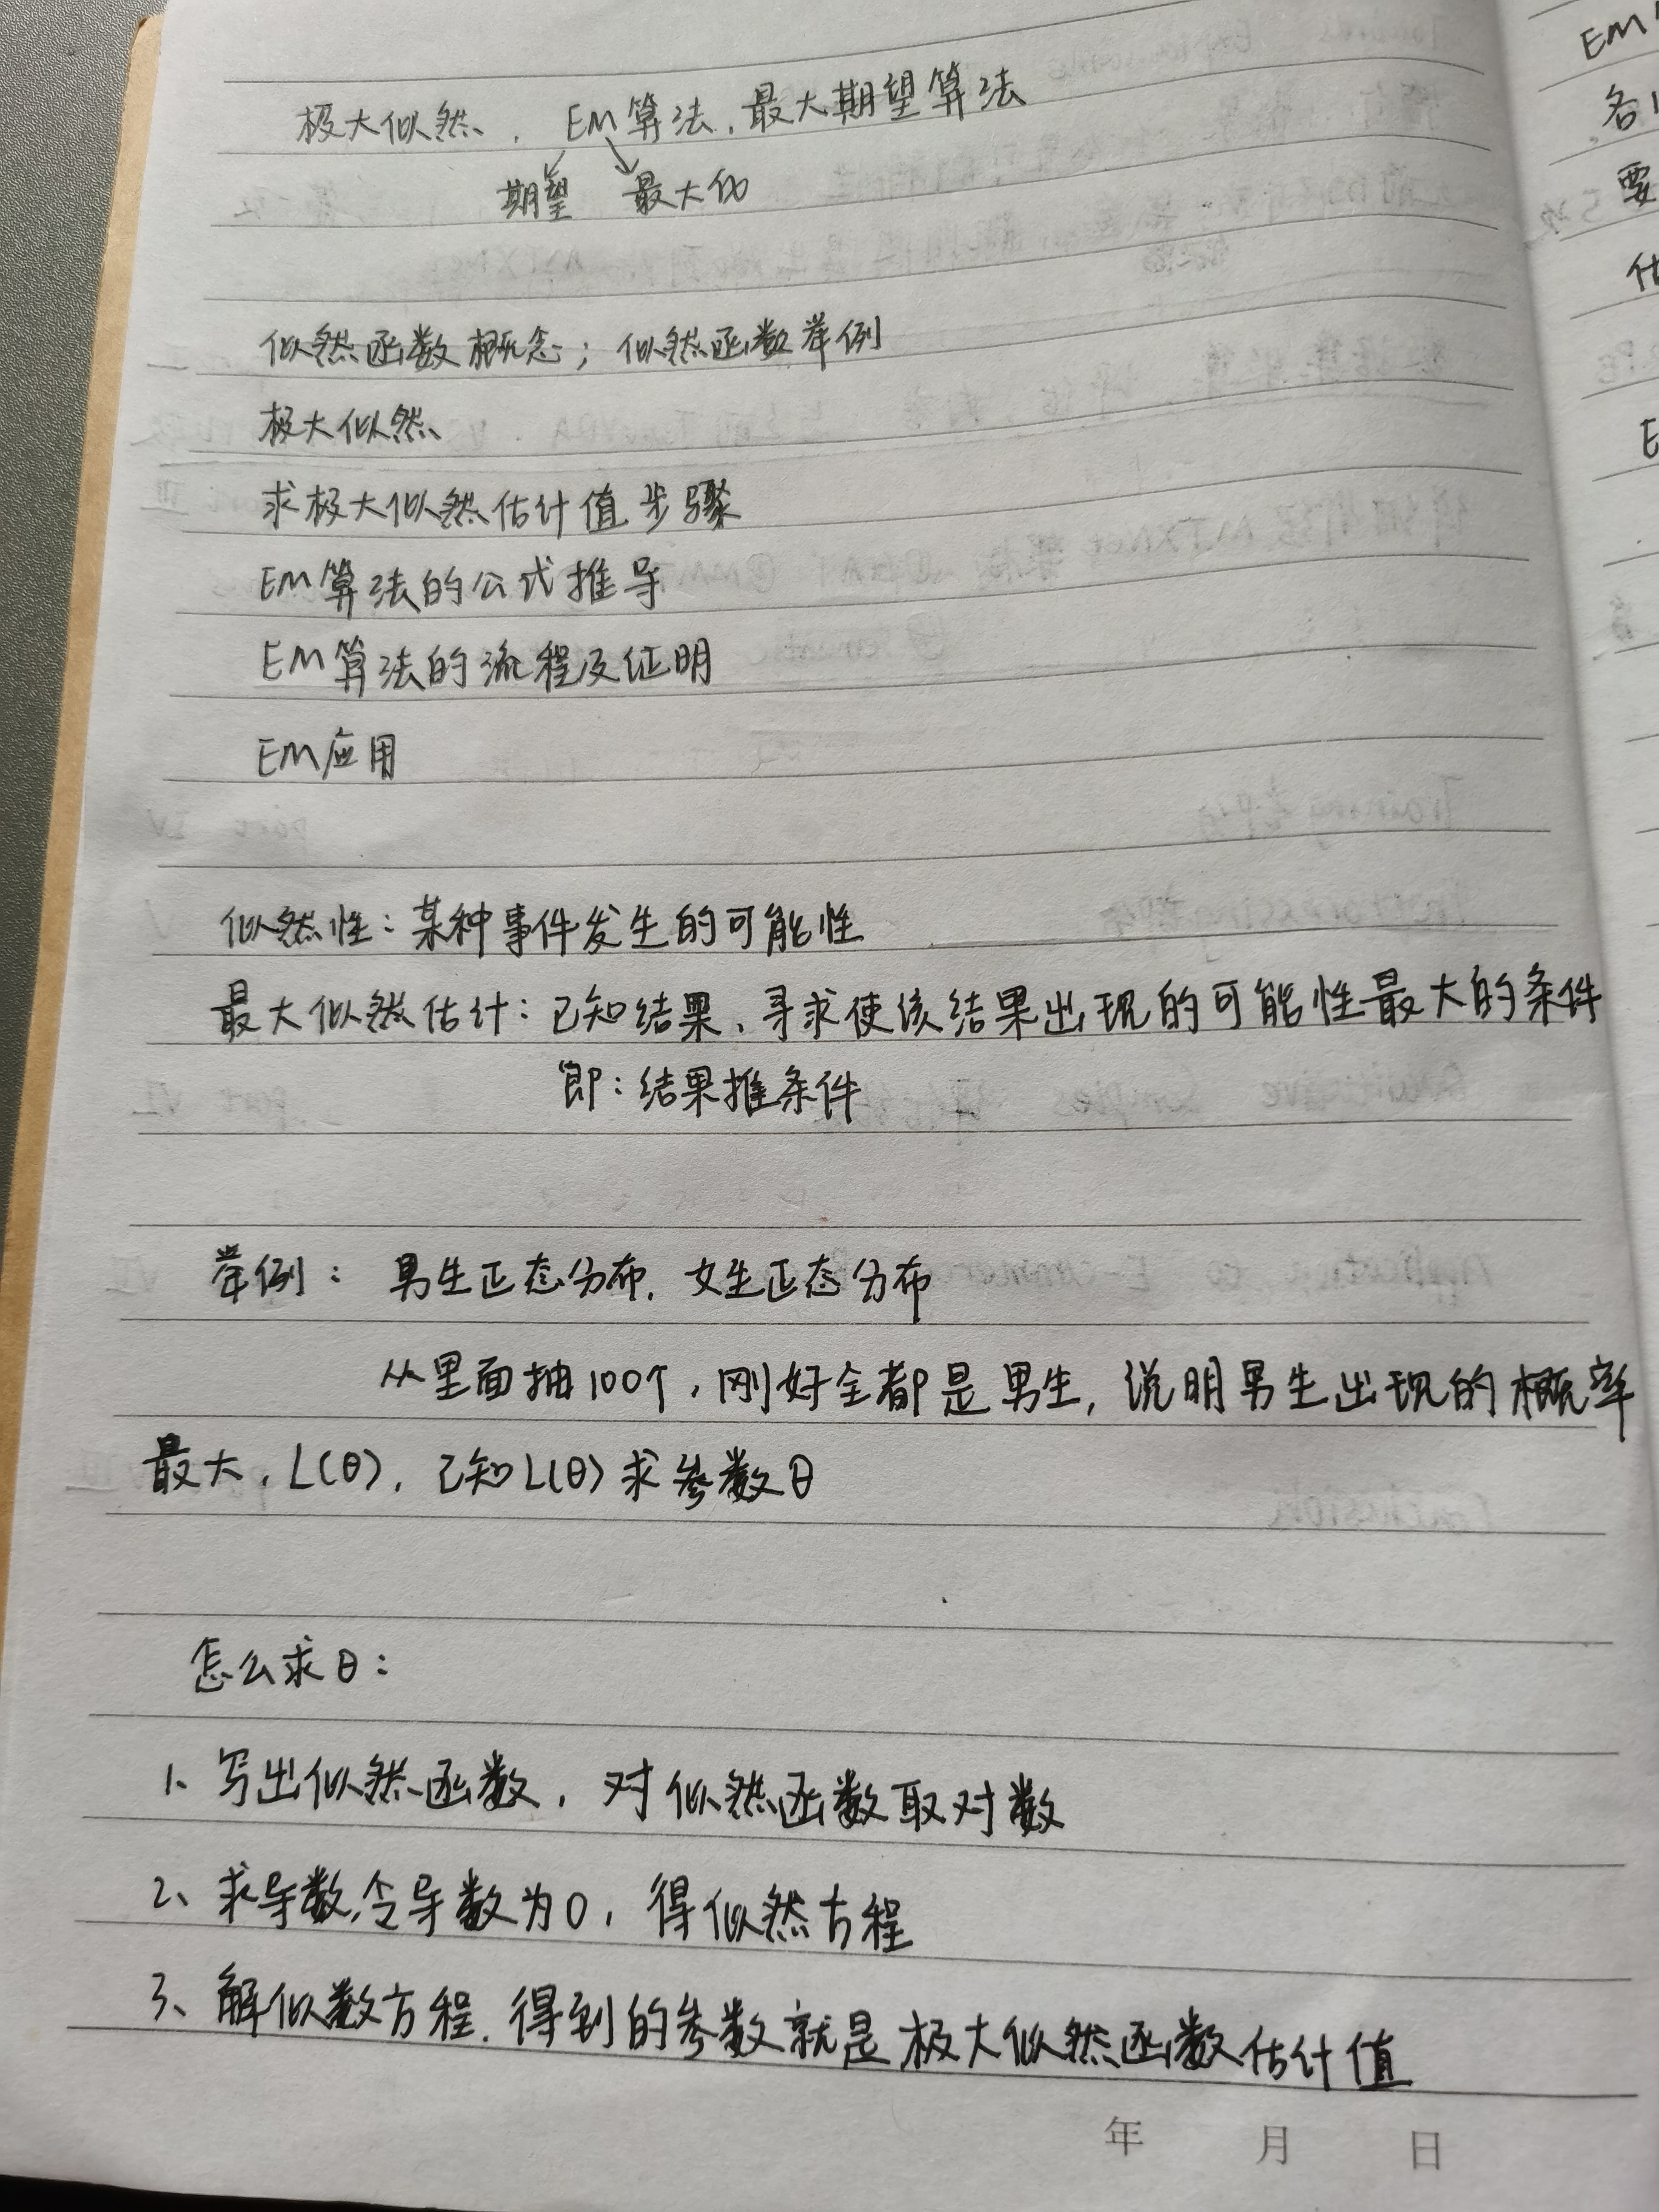 极大似然、, EM算法,最大期望算法
期望 最大化
似然函数概念; 似然函数举例
极大似然
求极大似然估计值步骤
EM算法的公式推导
EM算法的流程及证明
EM应用
似然性:某种事件发生的可能性
最大似然估计:已知结果,寻求使该结果出现的可能性最大的条件
即:结果推条件
举例: 男生正态分布,女生正态分布
从里面抽100个,刚好全都是男生,说明男生出现的概率
最大,L(θ),已知L(θ)求参数θ
怎么求θ:
1、写出似然函数,对似然函数取对数
2、求导数,令导数为0,得似然方程
3、解似数方程,得到的参数就是极大似然函数估计值
年 月 日
EM
各
要